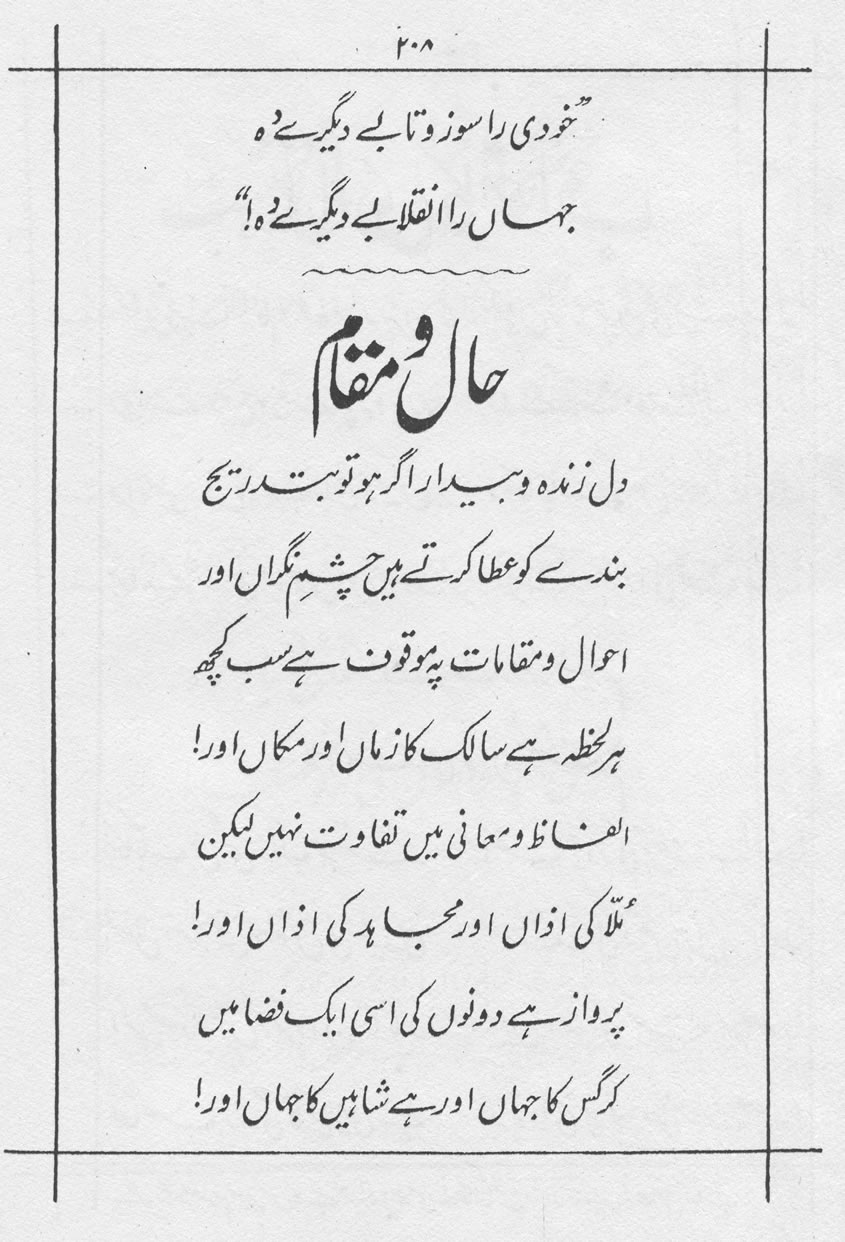 ۲۰۸
”خودی را سوز و تابے دیگرے دہ
جہاں را انقلابے دیگرے دہ!“
حال و مقام
دل زندہ و بیدار اگر ہو تو بتدریج
بندے کو عطا کرتے ہیں چشمِ نگراں اور
احوال و مقامات پہ موقوف ہے سب کچھ
ہر لحظہ ہے سالک کا زماں اور مکاں اور!
الفاظ و معانی میں تفاوت نہیں لیکن
مُلّا کی اذاں اور مجاہد کی اذاں اور!
پرواز ہے دونوں کی اسی ایک فضا میں
کرگس کا جہاں اور ہے شاہیں کا جہاں اور!